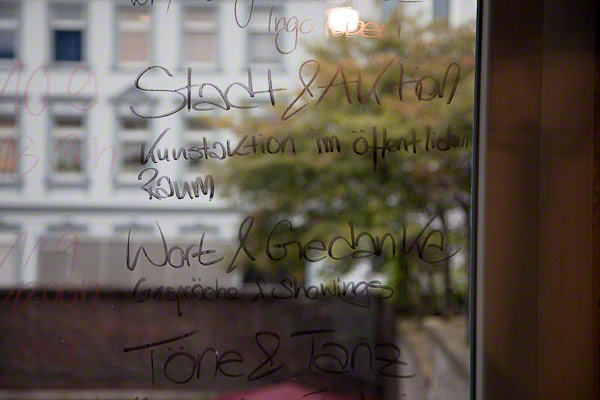 Ingo
10.9 Stadt & Aktion
Kunstaktion im öffentlichen
Raum
11.9 Wort & Gedanke
Gespräche & Showings
Töne & Tanz